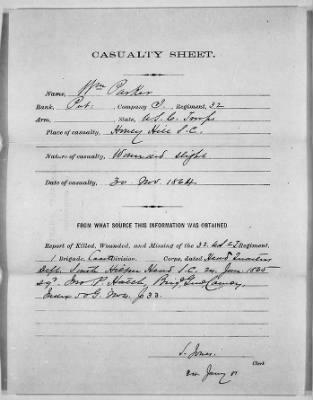 CASUALTY SHEET.
Name, Wm Parker
Rank, Pvt. Company I, Regiment, 32
Arm, State, U.S.C. Troops
Place of casualty, Honey Hill S.C.
Nature of casualty, Wounded slight
Date of casualty, 30 Nov. 1864
FROM WHAT SOURCE THIS INFORMATION WAS OBTAINED.
Report of Killed, Wounded, and Missing of the 32. Regiment,
1 Brigade, Coast Division, Corps, dated Head Quarters
Dept. South Hilton Head S.C. 24. Jan 1865
sg'd. Jno P. Hatch, Brig. Genl Comdg.
Index 50 G. 33.
S. Jones.
Clerk